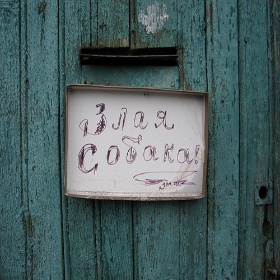 Злая
Собака!